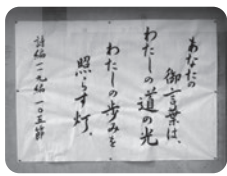 あなたの
御言葉は、
わたしの道の光
わたしの歩みを
照らす灯。
詩編一一九編一〇五節